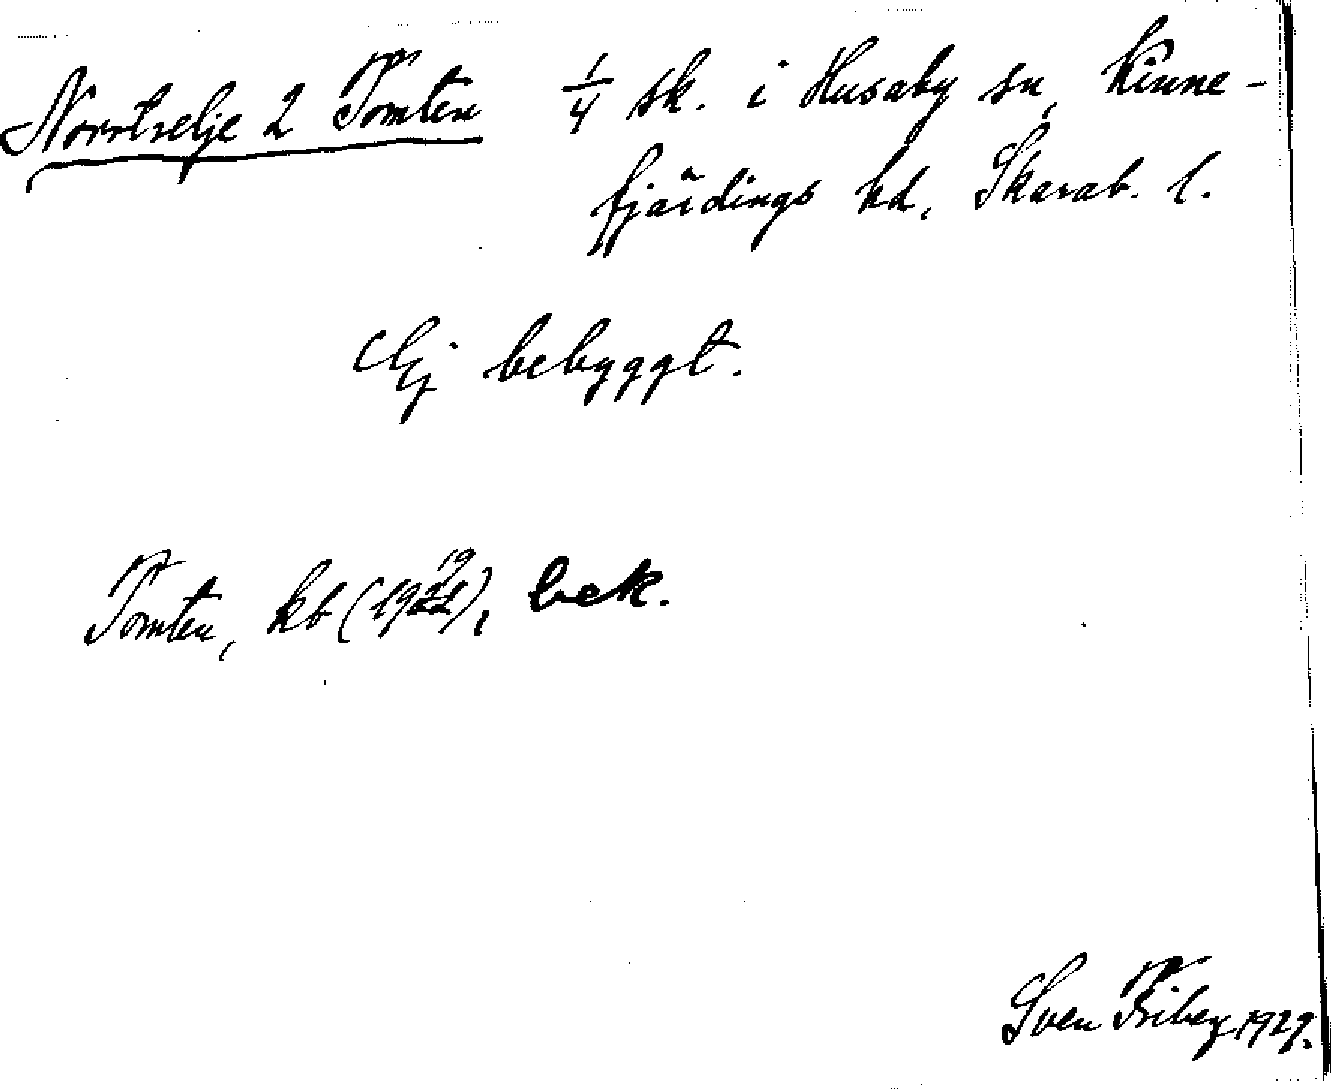 Norrtselje 2 Tomten 1/4 sk. i Husaby sn, Kinne-
fjärdings hd, Skarab. l.
Ej bebyggt.
Tomten, kb (1922), bek.
Sven Friberg 1929.